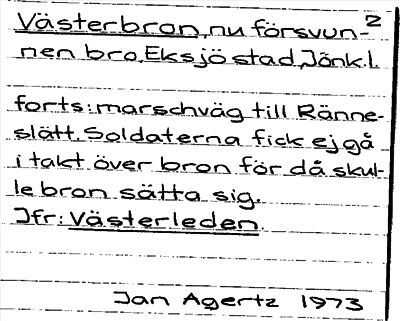 2
Västerbron, nu försvun-
nen bro, Eksjö stad, Jönk.l.
forts: marschväg till Ränne-
slätt. Soldaterna fick ej gå
i takt över bron för då skul-
le bron sätta sig.
Jfr: Västerleden.
Jan Agertz 1973